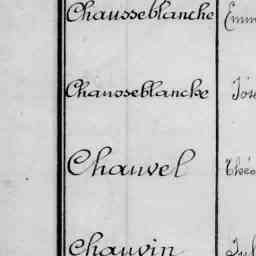 Chausseblanche Emm
Chausseblanche Jos
Chauvel Théo
Chauvin Jul